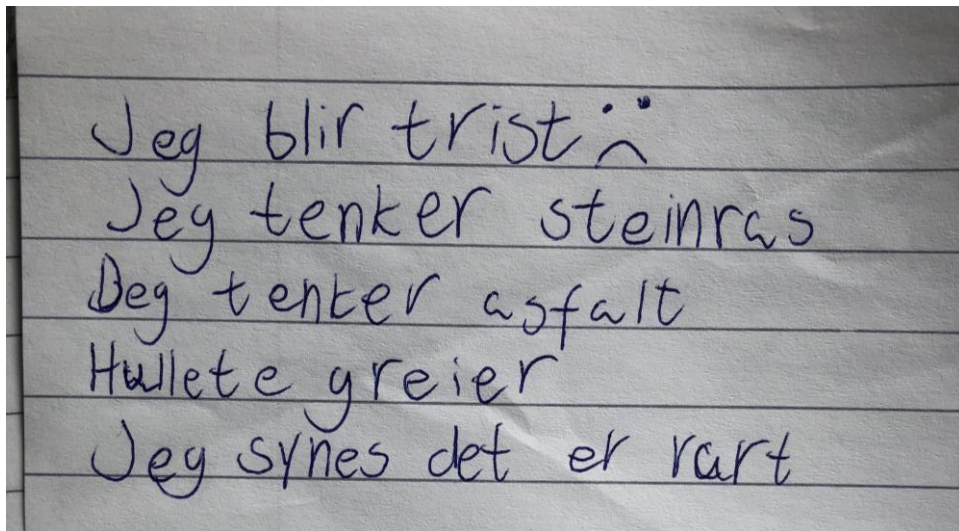 Jeg blir trist :(
Jeg tenker steinras
Deg tenker asfalt
Hullete greier
Jeg synes det er rart